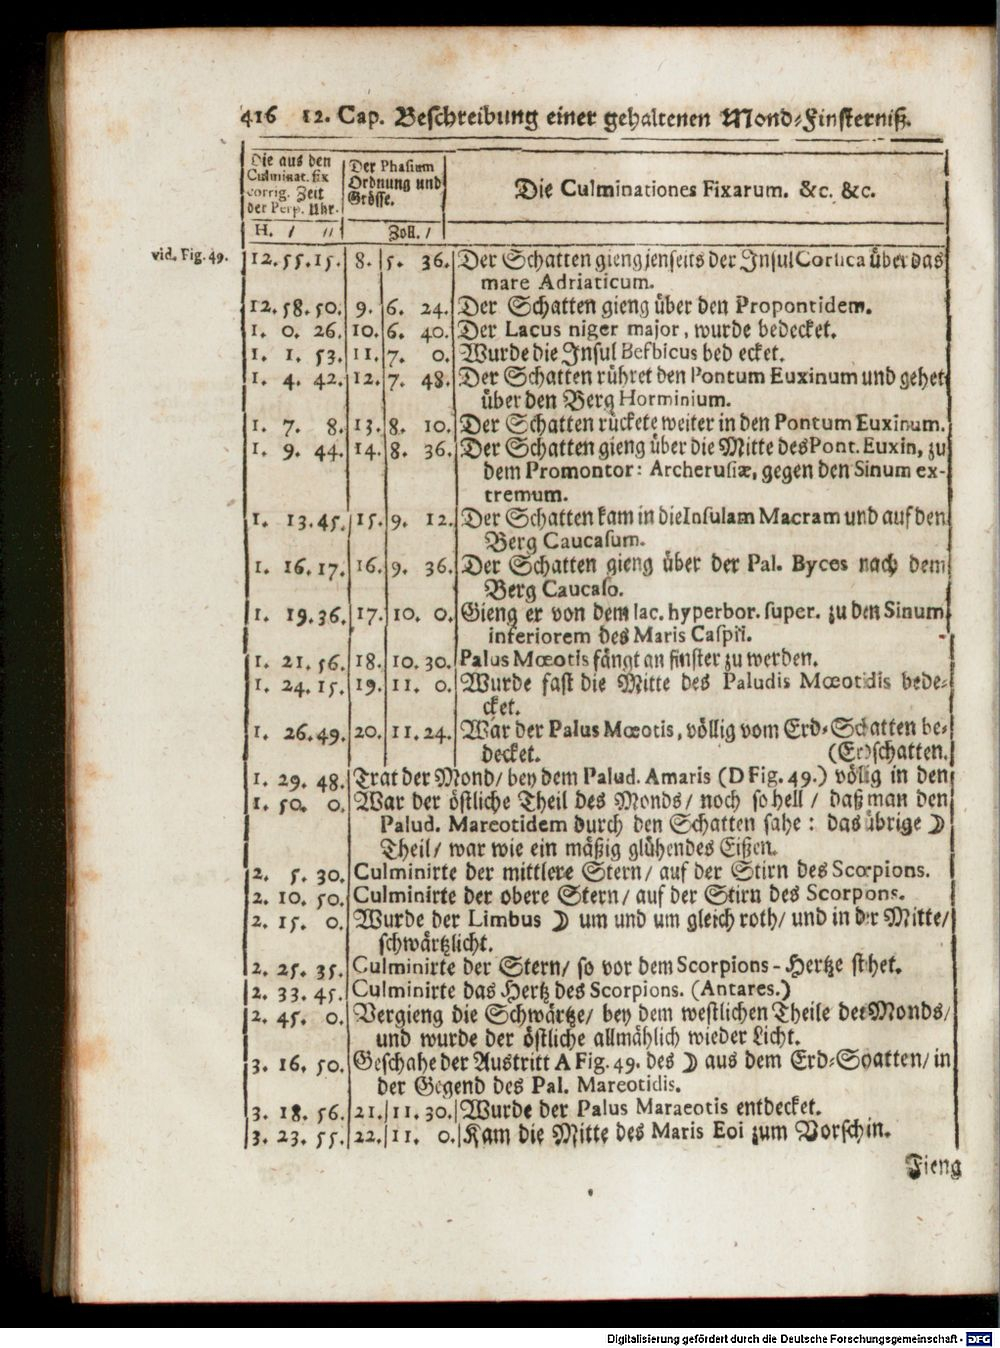 416 12. Cap. Beschreibung einer gehaltenen Mond-Finsterniß.
Die aus den
Culminat. fix
corrig. Zeit
der Perp. Uhr.
Der Phasium
Ordnung und
Grösse.
Die Culminationes Fixarum. &c. &c.
H. / // Zoll. /
vid. Fig. 49.
12. 55. 15. 8. 5. 36. Der Schatten gieng jenseits der Insul Corsica über das
mare Adriaticum.
12. 58. 50. 9. 6. 24. Der Schatten gieng über den Propontidem.
1. 0. 26. 10. 6. 40. Der Lacus niger major, wurde bedecket.
1. 1. 53. 11. 7. 0. Wurde die Insul Besbicus bed ecket.
1. 4. 42. 12. 7. 48. Der Schatten rühret den Pontum Euxinum und gehet
über den Berg Horminium.
1. 7. 8. 13. 8. 10. Der Schatten rückete weiter in den Pontum Euxinum.
1. 9. 44. 14. 8. 36. Der Schatten gieng über die Mitte des Pont. Euxin, zu
dem Promontor: Archerusiæ, gegen den Sinum ex-
tremum.
1. 13. 45. 15. 9. 12. Der Schatten kam in die Insulam Macram und auf den
Berg Caucasum.
1. 16. 17. 16. 9. 36. Der Schatten gieng über der Pal. Byces nach dem
Berg Caucaso.
1. 19. 36. 17. 10. 0. Gieng er von dem lac. hyperbor. super. zu den Sinum
inferiorem des Maris Caspii.
1. 21. 56. 18. 10. 30. Palus Mœotis fängt an finster zu werden.
1. 24. 15. 19. 11. 0. Wurde fast die Mitte des Paludis Mœotidis bede-
cket.
1. 26. 49. 20. 11. 24. War der Palus Mœotis, völlig vom Erd-Schatten be-
decket. (Erdschatten.
1. 29. 48. Trat der Mond/ bey dem Palud. Amaris (D Fig. 49.) völlig in den
1. 50. 0. War der östliche Theil des Monds/ noch so hell / daß man den
Palud. Mareotidem durch den Schatten sahe: das übrige ☽
Theil/ war wie ein mäßig glühendes Eißen.
2. 5. 30. Culminirte der mittlere Stern/ auf der Stirn des Scorpions.
2. 10. 50. Culminirte der obere Stern/ auf der Stirn des Scorpons.
2. 15. 0. Wurde der Limbus ☽ um und um gleich roth/ und in der Mitte/
schwärtzlicht.
2. 25. 35. Culminirte der Stern/ so vor dem Scorpions-Hertze sthet.
2. 33. 45. Culminirte das Hertz des Scorpions. (Antares.)
2. 45. 0. Vergieng die Schwärtze/ bey dem westlichen Theile des Monds/
und wurde der östliche allmählich wieder Licht.
3. 16. 50. Geschahe der Austritt A Fig. 49. des ☽ aus dem Erd-Scatten/ in
der Gegend des Pal. Mareotidis.
3. 18. 56. 21. 11. 30. Wurde der Palus Maraeotis entdecket.
3. 23. 55. 22. 11. 0. Kam die Mitte des Maris Eoi zum Vorschin.
Fieng
Digitalisierung gefördert durch die Deutsche Forschungsgemeinschaft - DFG